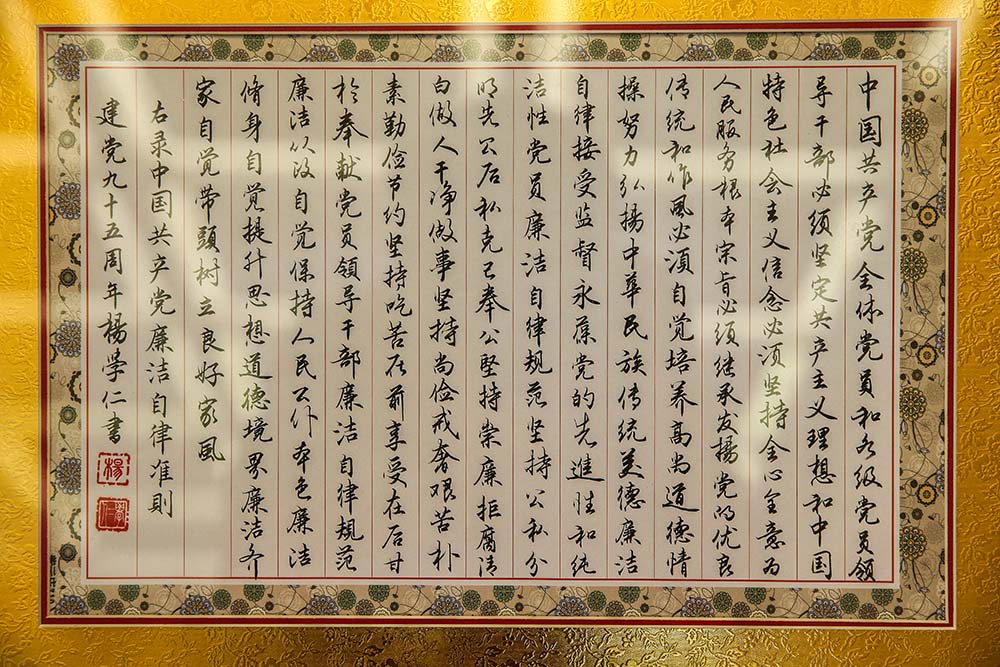 中国共产党全体党员和各级党员领
导干部必须坚定共产主义理想和中国
特色社会主义信念必须坚持全心全意为
人民服务根本宗旨必须继承发揚党的优良
传统和作風必須自觉培养高尚道德情
操努力弘揚中華民族传统美德廉洁
自律接受监督永葆党的先進性和纯
洁性党员廉洁自律规范坚持公私分
明先公后私克己奉公堅持崇廉拒腐清
白做人干净做事坚持尚俭戒奢艰苦朴
素勤俭节约坚持吃苦在前享受在后甘
於奉献党员領导干部廉洁自律規范
廉洁从政自觉保持人民公仆本色廉洁
脩身自觉提升思想道德境界廉洁齐
家自觉带頭树立良好家風
右录中国共产党廉洁自律准则
建党九十五周年楊学仁書
楊
學仁